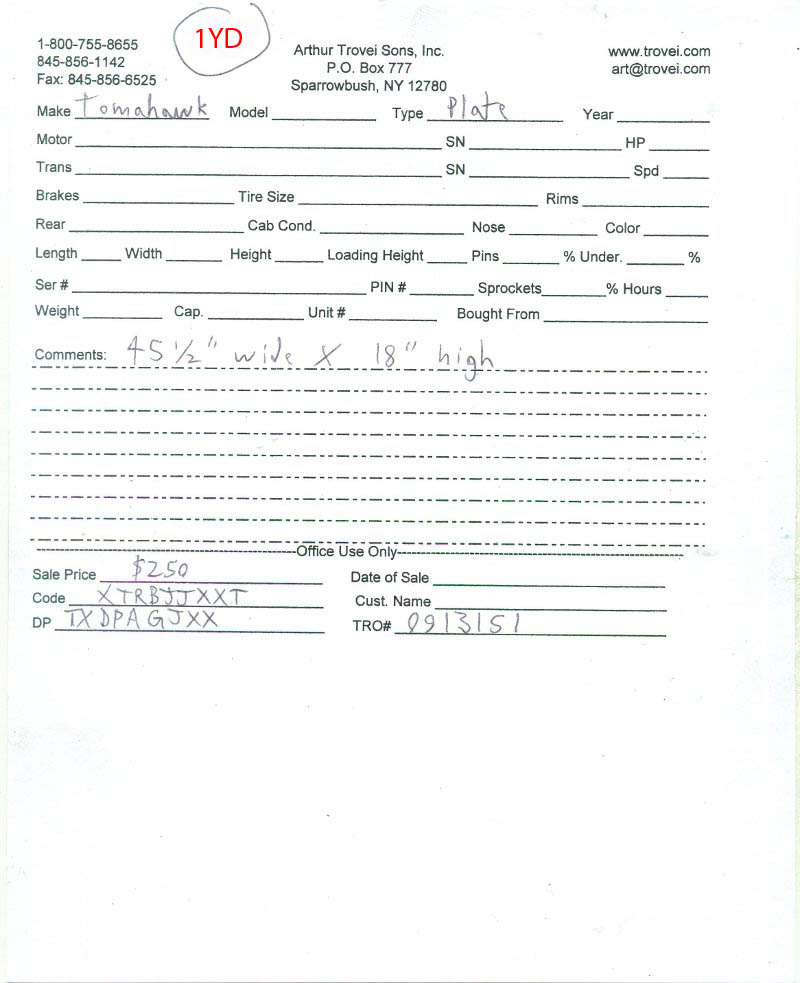 1YD
1-800-755-8655
845-856-1142
Fax: 845-856-6525
Arthur Trovei Sons, Inc.
P.O. Box 777
Sparrowbush, NY 12780
www.trovei.com
art@trovei.com
Make Tomahawk Model Type Plate Year
Motor SN HP
Trans SN Spd
Brakes Tire Size Rims
Rear Cab Cond. Nose Color
Length Width Height Loading Height Pins % Under. %
Ser # PIN # Sprockets % Hours
Weight Cap. Unit # Bought From
Comments: 45 1/2" wide X 18" high
Office Use Only
Sale Price $250 Date of Sale
Code XTRBJJXXT Cust. Name
DP TXDPAGJXX TRO# 0913151